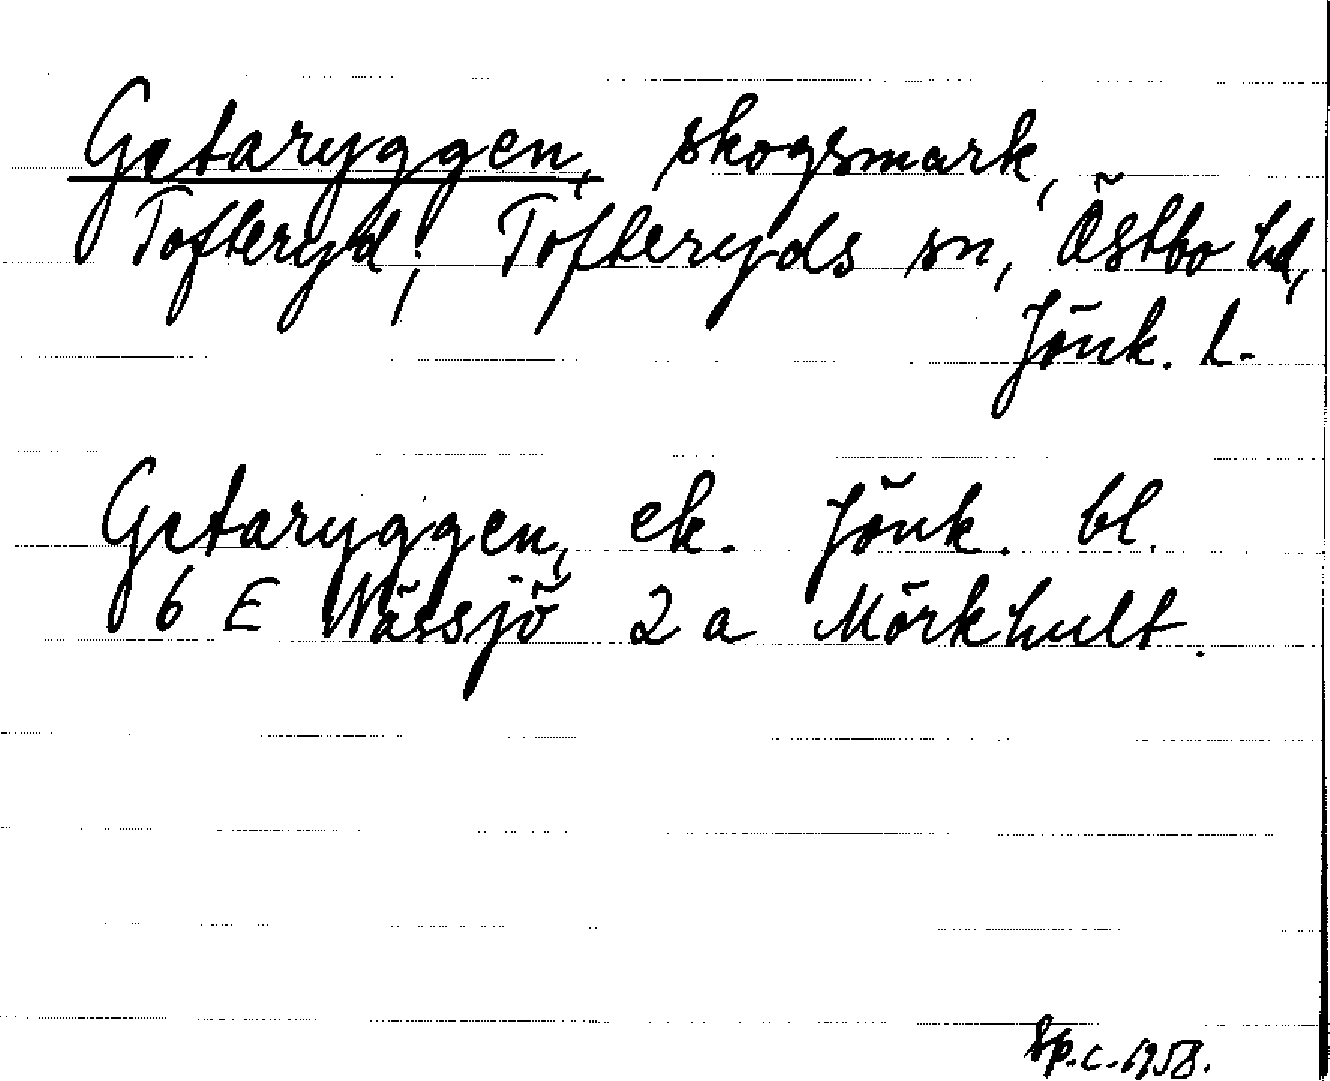 Getaryggen, skogsmark,
Tofteryd; Tofteryds sn, Östbo hd,
Jönk. l.
Getaryggen, ek. Jönk. bl.
6 E Nässjö 2 a Mörkhult.
Sp.c. 1958.